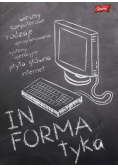 wirusy
komputerowe
rodzaje
oprogramowania
systemy
operacyjne
płyta główna
internet
IN
FORMA
tyka